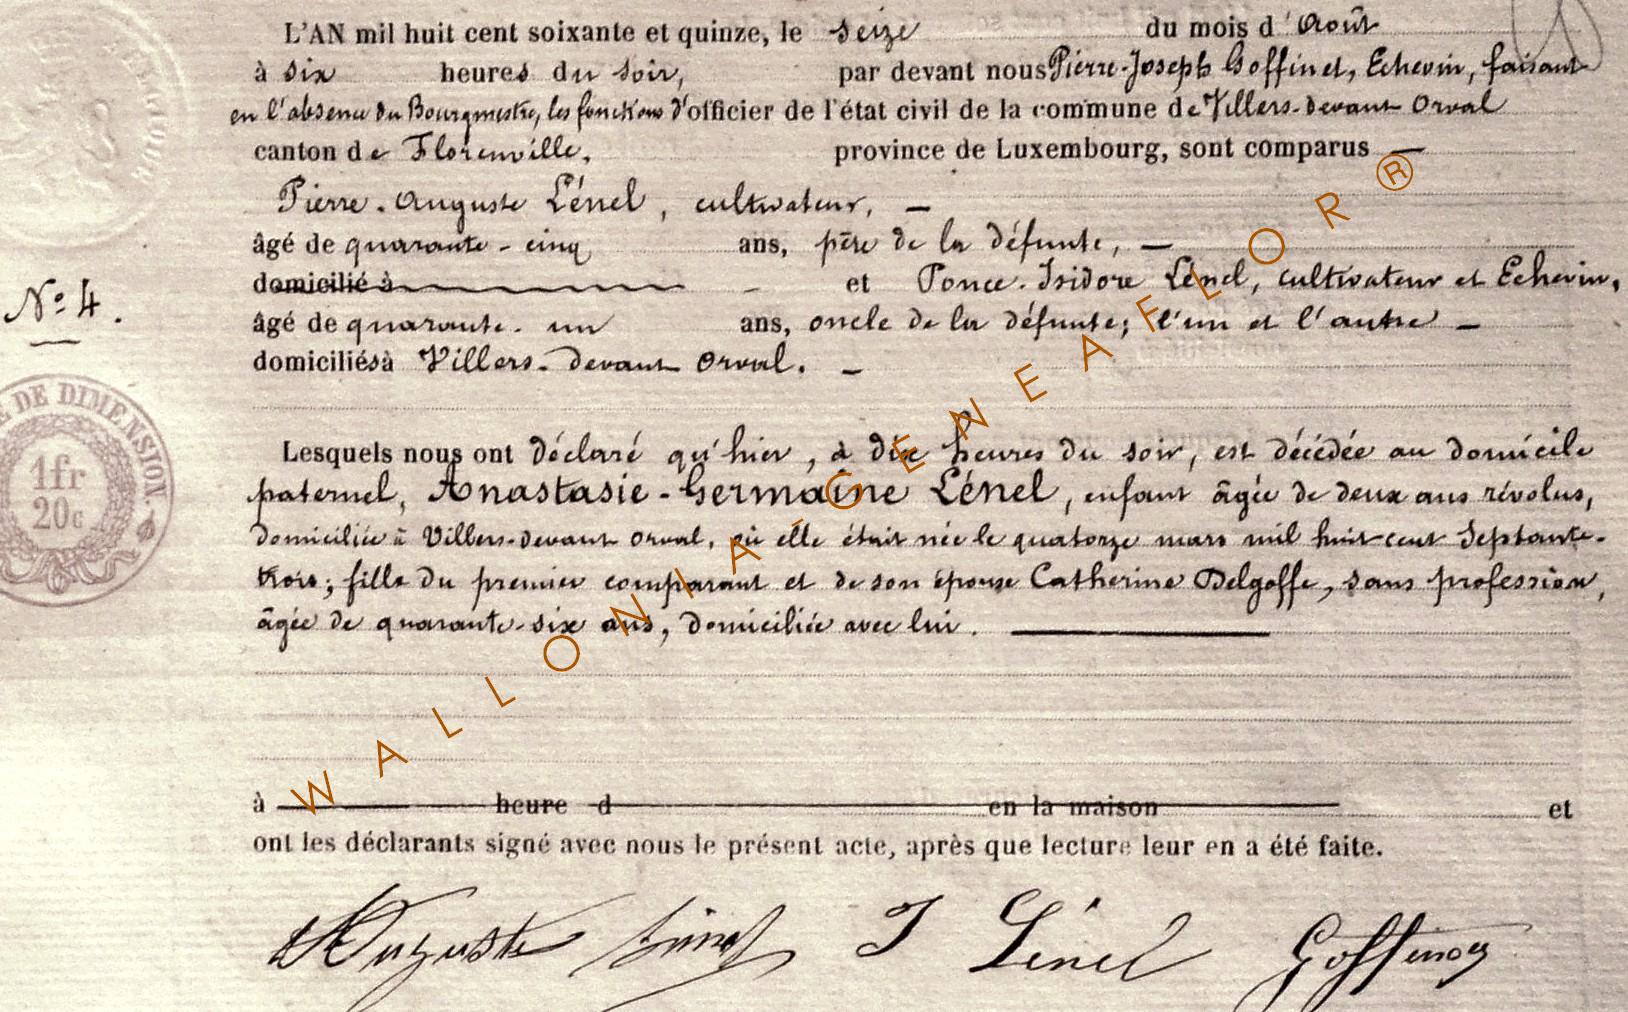 L'AN mil huit cent soixante et quinze, le seize du mois d'Août
à six heures du soir, par devant nous Pierre-Joseph Goffinet, Echevin, faisant
en l'absence du Bourgmestre, les fonctions d'officier de l'état civil de la commune de Villers-devant Orval
canton de Florenville, province de Luxembourg, sont comparus —
Pierre-Auguste Lénel, cultivateur, —
âgé de quarante-cinq ans, père de la défunte, —
domicilié à - et Ponce-Isidore Lénel, cultivateur et Echevin,
N° 4.
âgé de quarante-un ans, oncle de la défunte; l'un et l'autre —
domiciliés à Villers-devant Orval. —
Lesquels nous ont déclaré qu'hier, à dix heures du soir, est décédée au domicile
paternel, Anastasie-Germaine Lénel, enfant âgée de deux ans révolus,
domiciliée à Villers-devant Orval, où elle était née le quatorze mars mil huit cent septante-
trois; fille du premier comparant et de son épouse Catherine Delgoffe, sans profession,
âgée de quarante-six ans, domiciliée avec lui.
à heure d en la maison et
ont les déclarants signé avec nous le présent acte, après que lecture leur en a été faite.
Auguste Lénel J Lénel Goffinet
E DE DIMENSION.
1fr
20c
WALLONIA-GENEAFLOR®